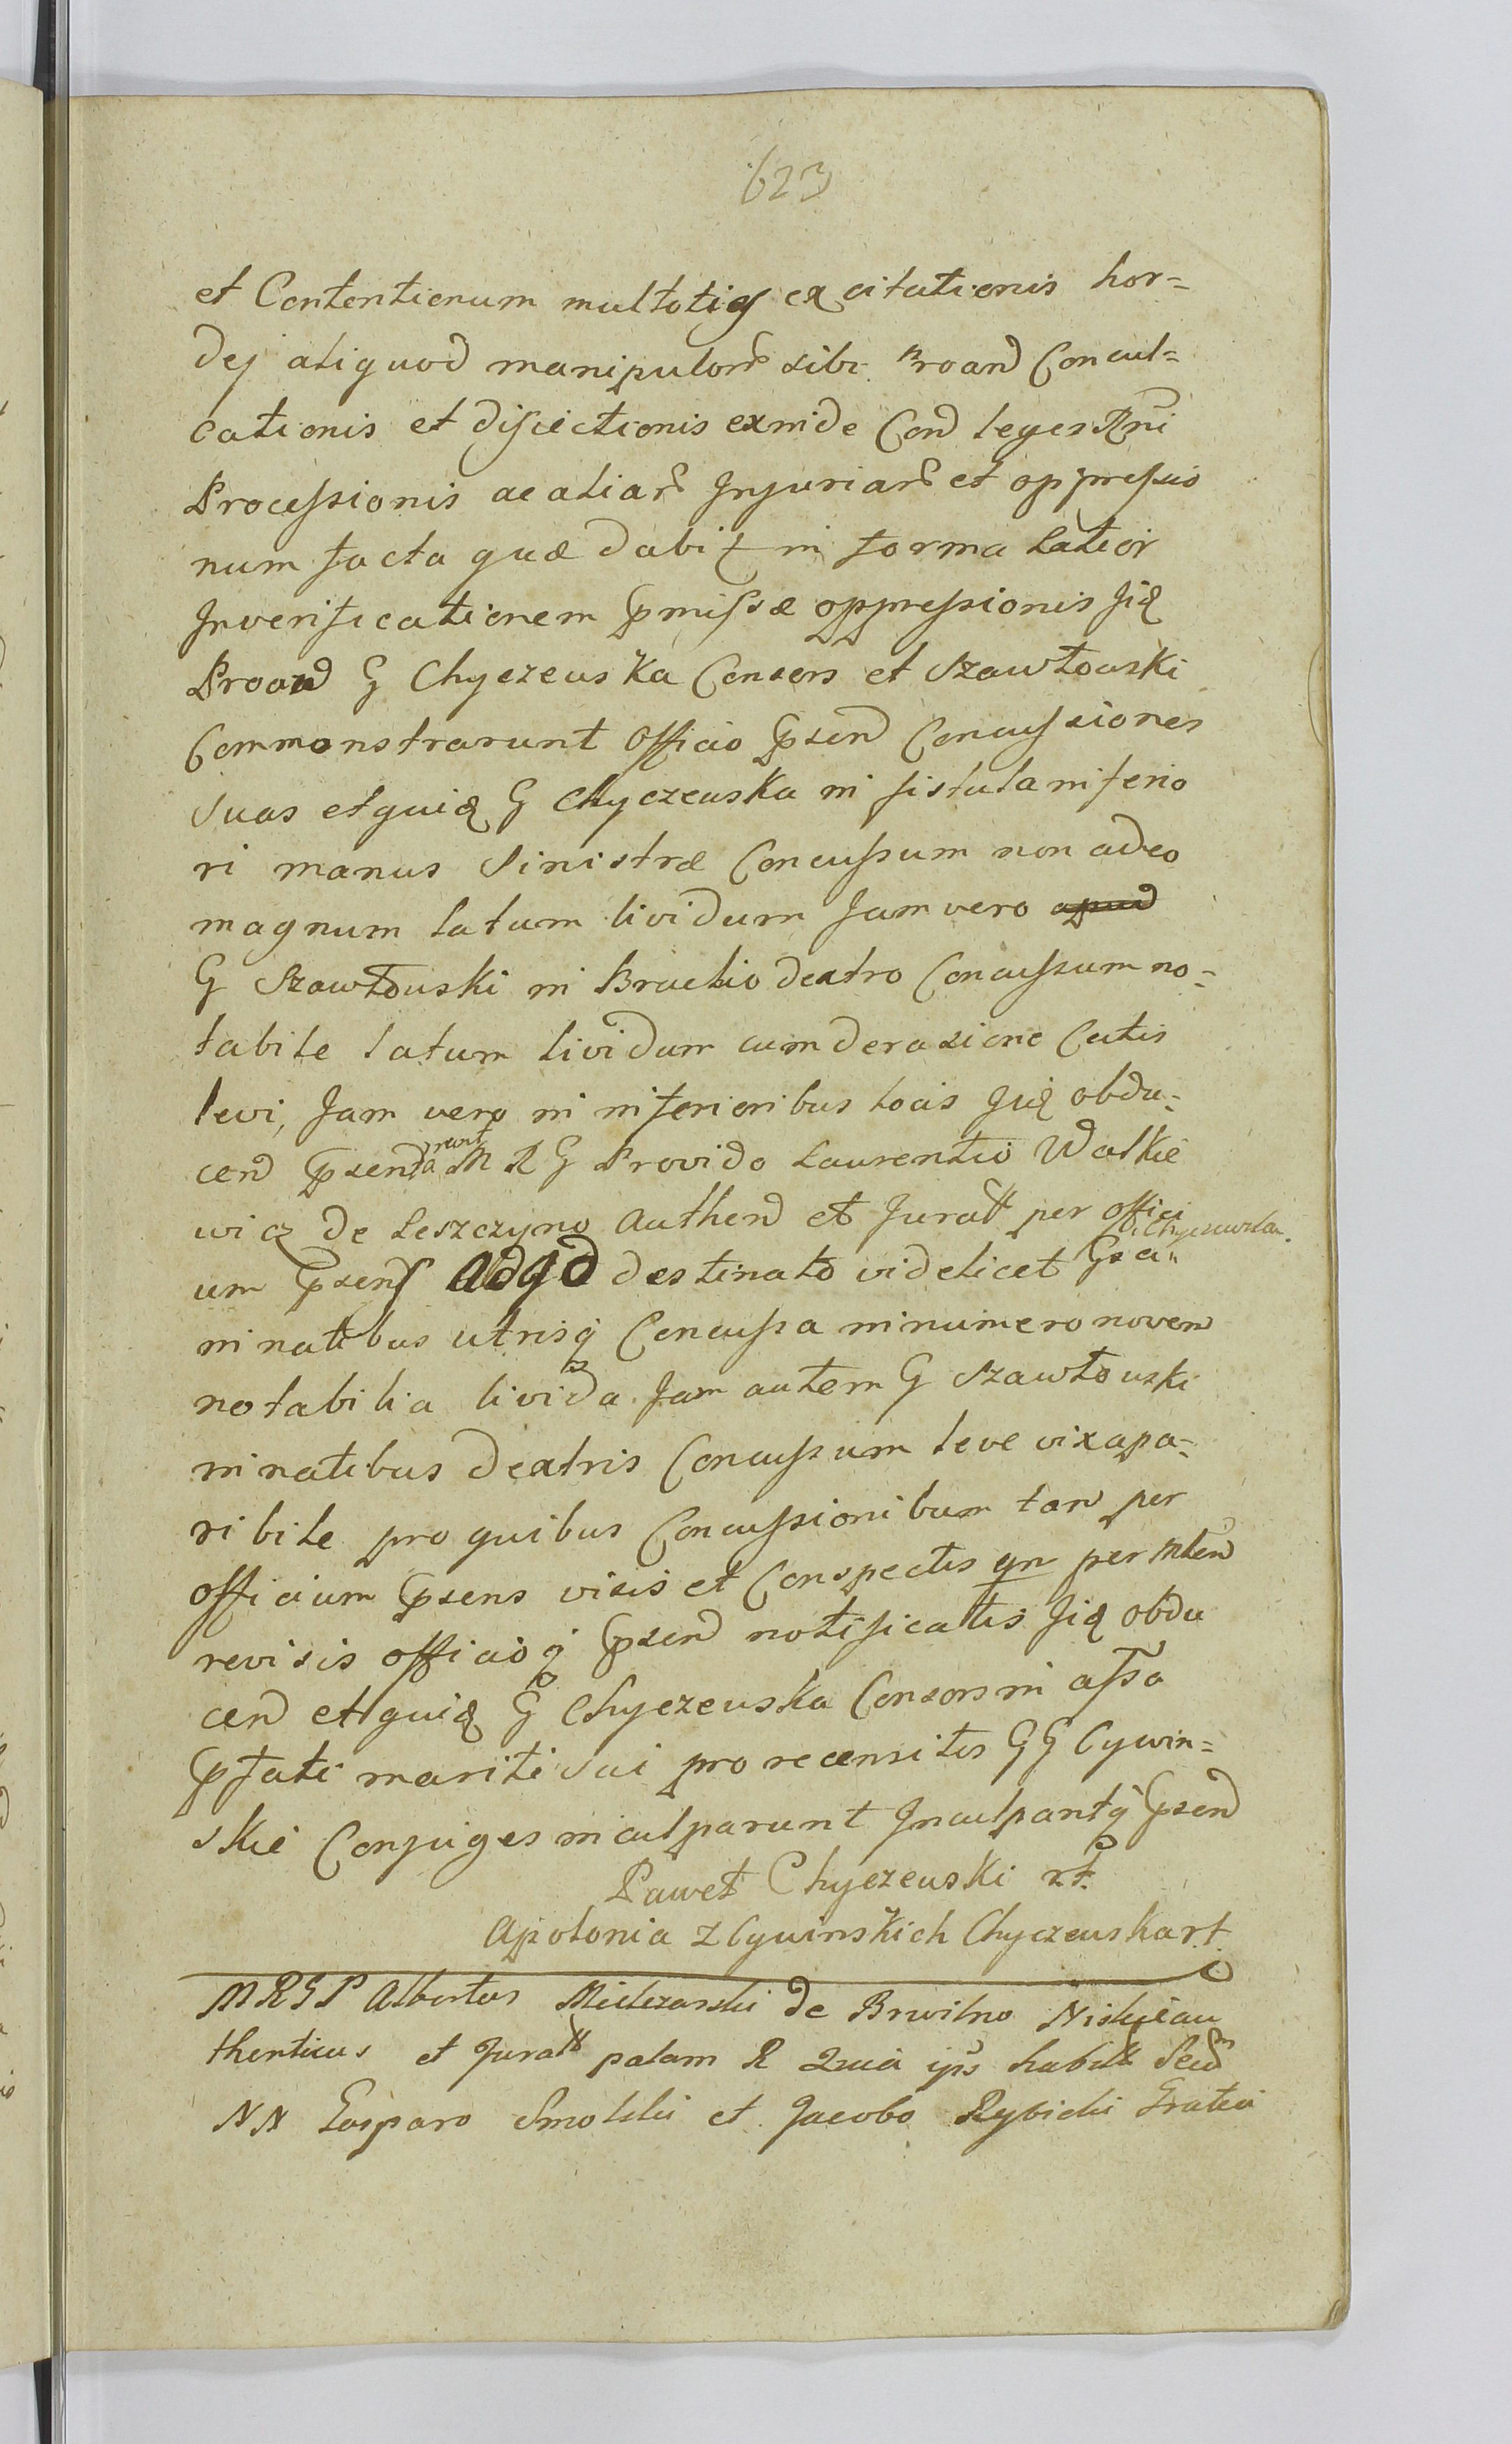 623
et Contentionum multoties excitationis hor=
dej aliquod manipulor sibi Proand Concul=
cationis et disiectionis exinde Cond leges Rni
Processionis ac aliar Injuriar et oppressio
num facta quæ dabit in forma Latior
In verificationem pmissæ oppressionis Iiq
Proand G Chyczewska Consors et Szawłowski
Commonstrarunt Officio psend Concussiones
Suas et quiq G Chyczewska in fistula inferio
ri manus Sinistræ Concussum non adeo
magnum latum lividum Jam vero apud
G Szawłowski in Brachio dextro Concussum no=
tabile latum lividum cum derasione Cutis
levi, Jam vero in inferioribus locis Iiq obdu=
cend psenta runt M R G Provido Laurentio Walkie
wicz de Leszczyno Authend et Juratt per offici
um psens ADGD destinato videlicet Gsa Chyczewska
in natibus utrisq Concussa in numero novem
notabilia livida Jam autem G Szawłowski
in natibus dextris Concussum leve vix apa=
ribile pro quibus Concussionibum tan per
officium psens visis et Conspectis qn per Mlend
revisis officioq psend notificatis Iiq obdu
cend et quiq G Chyczewska Consors in assa
pfati mariti sui pro recensitis GG Cywin=
skie Conjuges inculparunt Inculpantq psend
Paweł Chyczewski rt.
Apolonia z Cywinskich Chyczewska rt.
MRGP Albertus de Brwilno Niskie au
thenticus et Juratt palam R Quia ips habitt Secu
NN Gasparo Smolski et Jacobo Rybicki Gratia